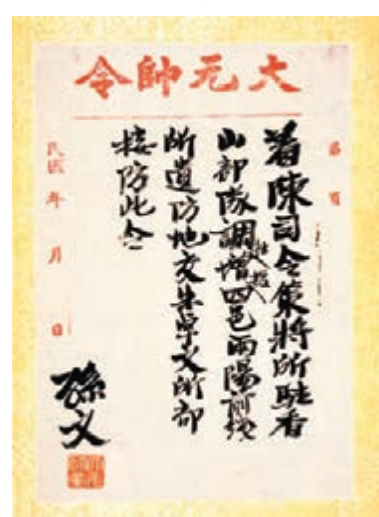 大元帥令
着陳司令策將所駐香
山部隊調增四邑兩陽前線
所遺防地交朱卓文所部
接防此令
民國 年 月 日
孫文